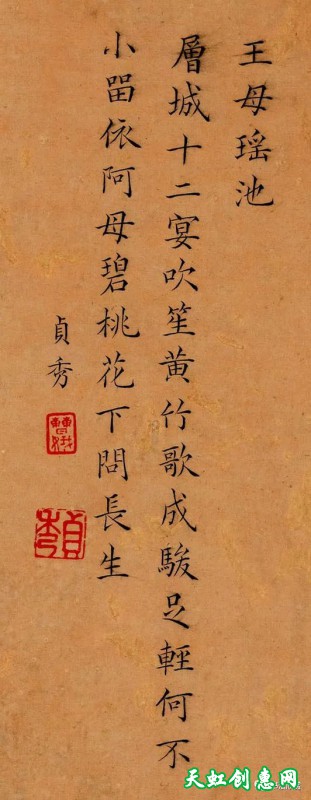 王母瑶池
層城十二宴吹笙黄竹歌成駿足輕何不
小留依阿母碧桃花下問長生
貞秀
天虹创惠网